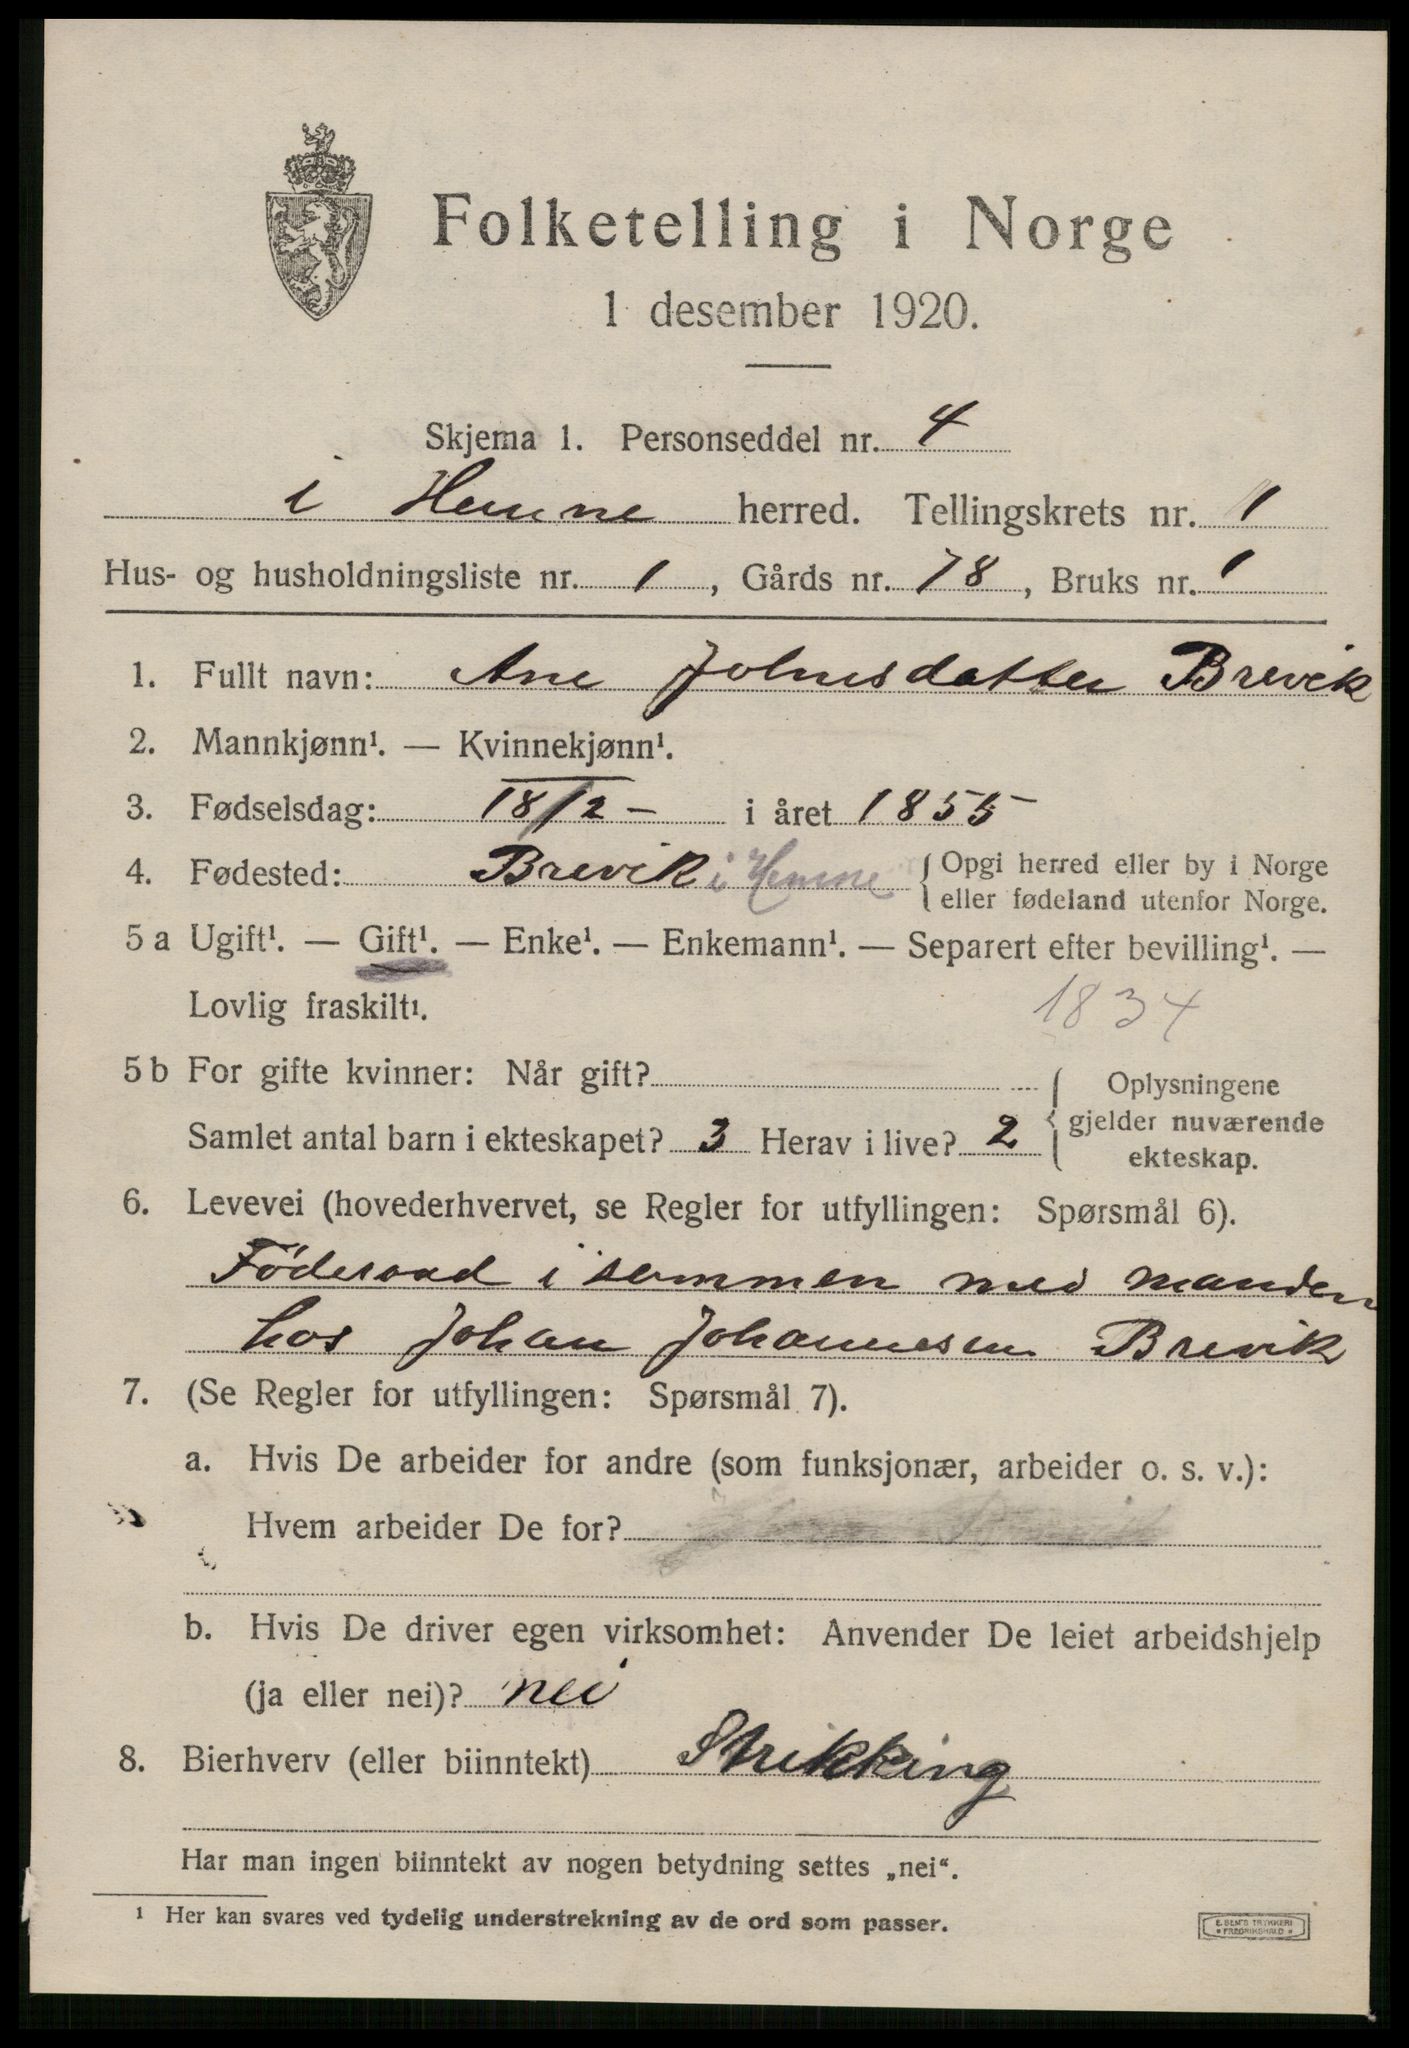 Folketelling i Norge
1 desember 1920.
Skjema 1. Personseddel nr. 4
i Hemne herred. Tellingskrets nr. 1
Hus- og husholdningsliste nr. 1, Gårds nr. 78, Bruks nr. 1
1. Fullt navn: Ane Johnsdatter Brevik
2. Mannkjønn¹. — Kvinnekjønn¹.
3. Fødselsdag: 18/2 - i året 1855
4. Fødested: Brevik i Hemne { Opgi herred eller by i Norge
eller fødeland utenfor Norge.
5 a Ugift¹. — Gift¹. — Enke¹. — Enkemann¹. — Separert efter bevilling¹. —
Lovlig fraskilt¹.
1834
5 b For gifte kvinner: Når gift?
Samlet antal barn i ekteskapet? 3 Herav i live? 2
Oplysningene
gjelder nuværende
ekteskap.
6. Levevei (hovederhvervet, se Regler for utfyllingen: Spørsmål 6).
Föderaad i sammen med manden
hos Johan Johannesen Brevik
7. (Se Regler for utfyllingen: Spørsmål 7).
a. Hvis De arbeider for andre (som funksjonær, arbeider o. s. v.):
Hvem arbeider De for?
b. Hvis De driver egen virksomhet: Anvender De leiet arbeidshjelp
(ja eller nei)? nei
8. Bierhverv (eller biinntekt) Strikking
Har man ingen biinntekt av nogen betydning settes „nei“.
¹ Her kan svares ved tydelig understrekning av de ord som passer.
E. SEM'S TRYKKERI
* FREDRIKSHALD *